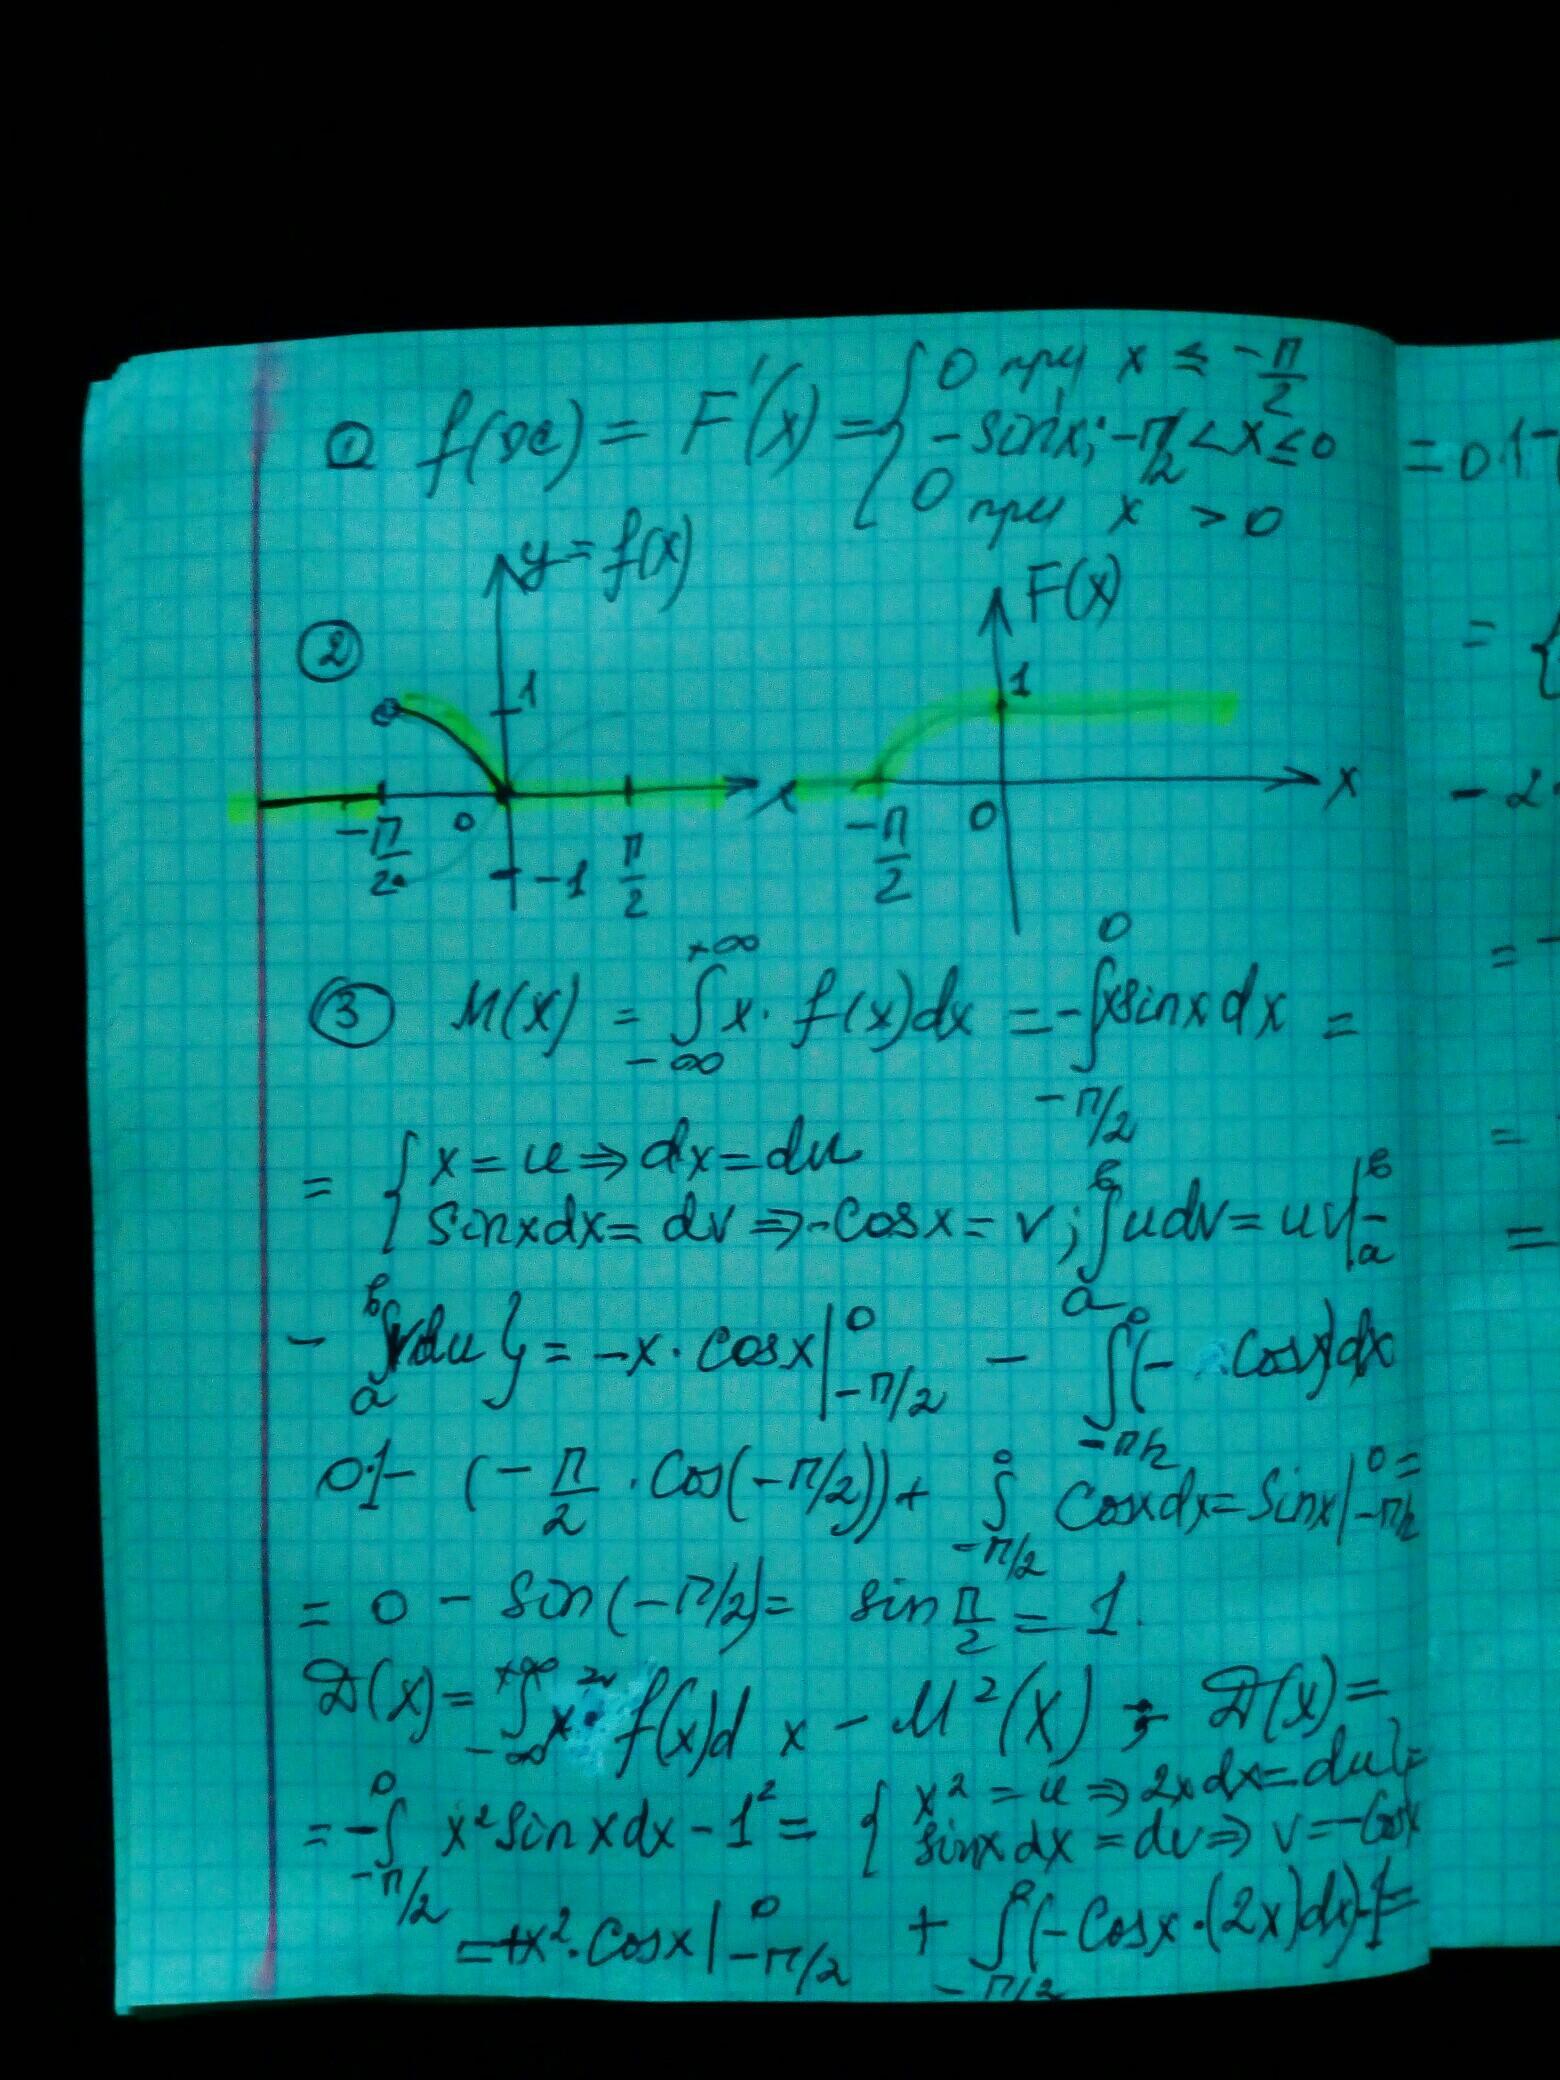 ① f(x) = F'(x) = { 0 при x ≤ -π/2
- sin x; -π/2 < x ≤ 0
0 при x > 0
= 0·1 -
y = f(x)
F(x)
②
1
1
= {
0
x
0
x
- 2
-π/2
-1
π/2
-π/2
③ M(x) = ∫_{-∞}^{+∞} x · f(x)dx = -∫_{-π/2}^{0} x sin x dx =
=
= { x = u ⇒ dx = du
sin x dx = dv ⇒ -cos x = v; ∫_a^b u dv = uv|_a^b -
=
- ∫_a^b v du } = -x · cos x |_{-π/2}^{0} - ∫_{-π/2}^{0} (- cos x)dx
0·1 - (-π/2 · cos(-π/2)) + ∫_{-π/2}^{0} cos x dx = sin x |_{-π/2}^{0} =
= 0 - sin(-π/2) = sin π/2 = 1.
D(x) = ∫_{-∞}^{+∞} x² · f(x)d x - M²(X) ; D(x) =
= -∫_{-π/2}^{0} x² sin x dx - 1² = { x² = u ⇒ 2x dx = du } =
sin x dx = dv ⇒ v = -cos x
= +x² · cos x |_{-π/2}^{0} + ∫_{-π/2}^{0} (-cos x · (2x)dx) - 1 =